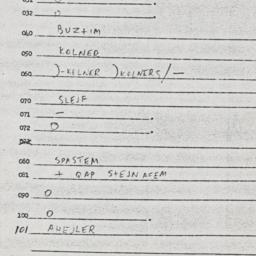 032 0 .
040 BUZTIM
050 KOLNER
060 )-KELNER )KOLNERS/—
070 SLEJF
071 — .
072 0 .
080 SPASTEM
081 + QAP STEJNACEM
090 0
100 0 .
101 AHEJLER